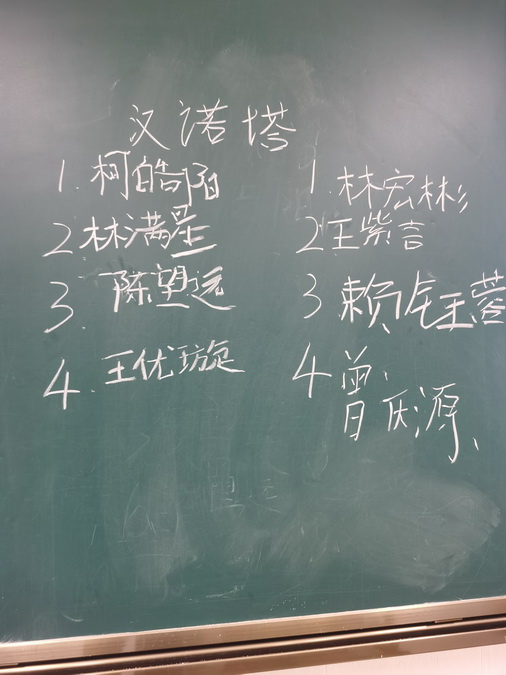 汉诺塔
1. 柯皓阳
2 林满星
3. 陈望远
4. 王优璇
1. 林宏彬
2 王紫吉
3 赖钰蓉
4 曾庆源